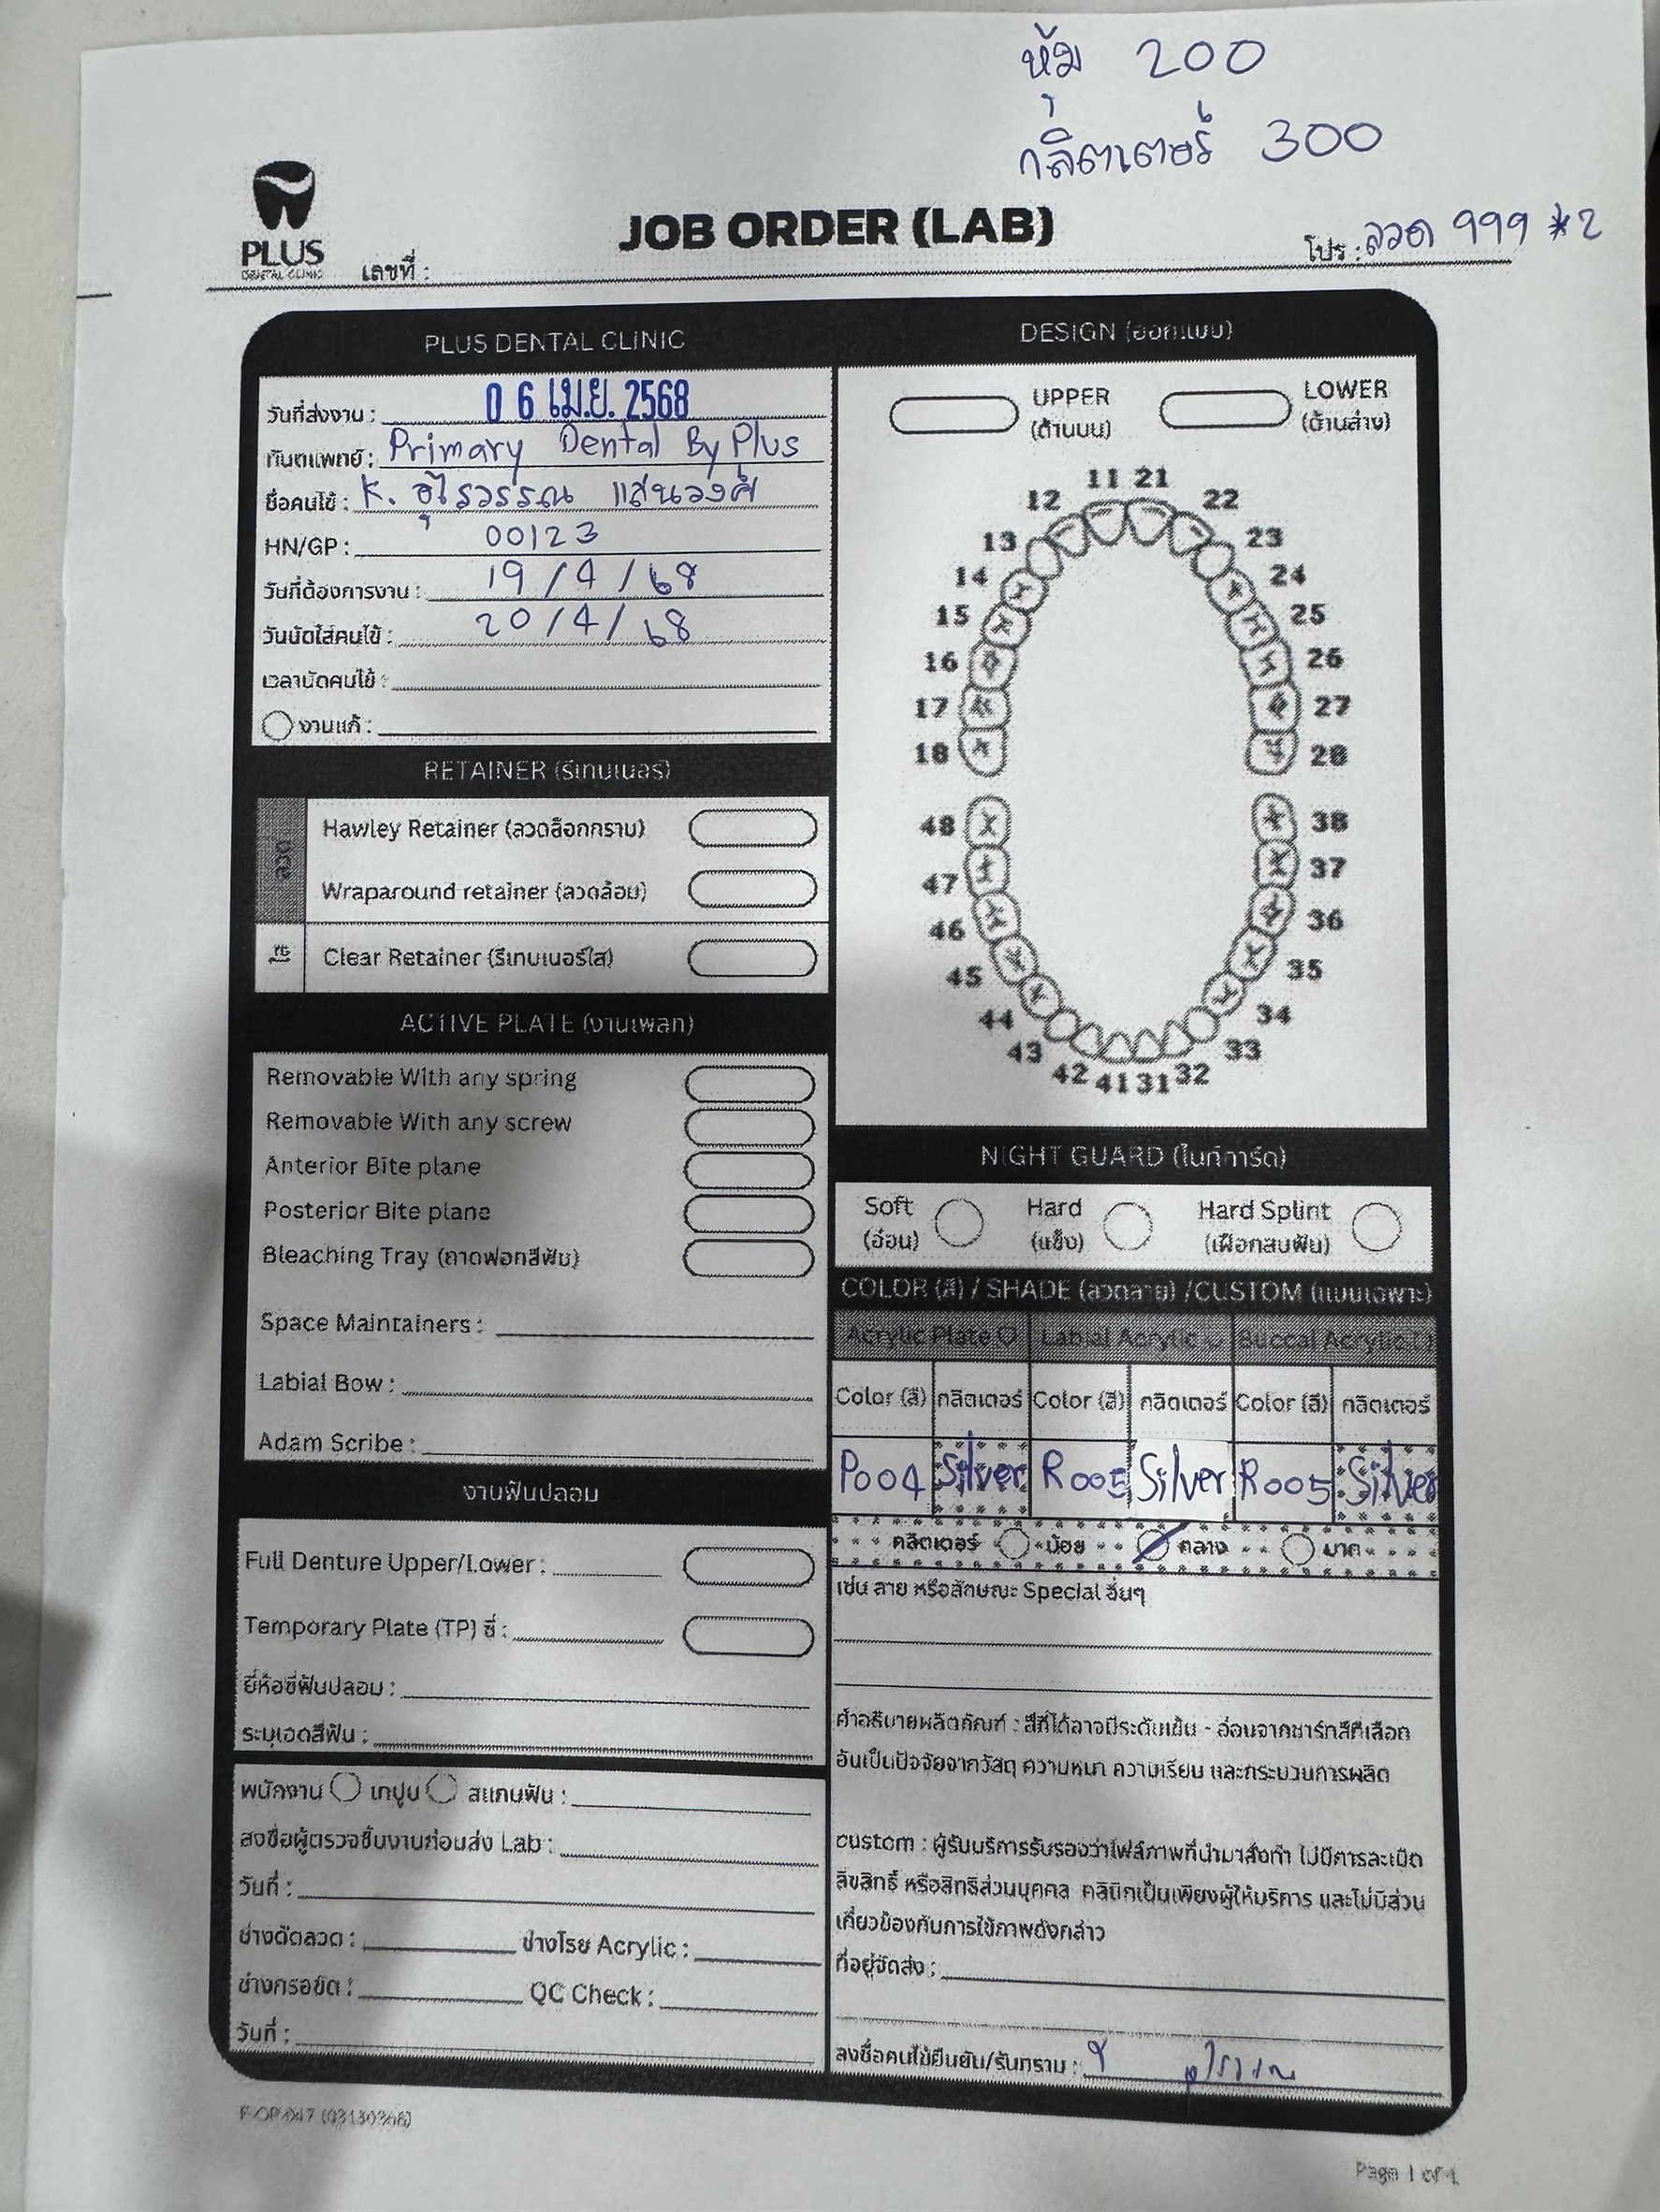 หุ้ม 200
กลิตเตอร์ 300
PLUS
DENTAL CLINIC
เลขที่ :
JOB ORDER (LAB)
โปร : ลวด 999 *2
PLUS DENTAL CLINIC
วันที่ส่งงาน : 06 เม.ย. 2568
ทันตแพทย์ : Primary Dental By Plus
ชื่อคนไข้ : K. อุไรวรรณ แสนวงศ์
HN/GP : 00123
วันที่ต้องการงาน : 19/4/68
วันนัดใส่คนไข้ : 20/4/68
เวลานัดคนไข้ :
งานแก้ :
RETAINER (รีเทนเนอร์)
ลวด
Hawley Retainer (ลวดล็อกกราม)
Wraparound retainer (ลวดล้อม)
ใส
Clear Retainer (รีเทนเนอร์ใส)
ACTIVE PLATE (งานเพลท)
Removable With any spring
Removable With any screw
Anterior Bite plane
Posterior Bite plane
Bleaching Tray (ถาดฟอกสีฟัน)
Space Maintainers :
Labial Bow :
Adam Scribe :
งานฟันปลอม
Full Denture Upper/Lower :
Temporary Plate (TP) ซี่ :
ยี่ห้อซี่ฟันปลอม :
ระบุเฉดสีฟัน :
พนักงาน เทปูน สแกนฟัน :
ลงชื่อผู้ตรวจชิ้นงานก่อนส่ง Lab :
วันที่ :
ช่างดัดลวด : ช่างโรย Acrylic :
ช่างกรอขัด : QC Check :
วันที่ :
DESIGN (ออกแบบ)
UPPER LOWER
(ด้านบน) (ด้านล่าง)
11 21
12 22
13 23
14 24
15 25
16 26
17 27
18 28
48 38
47 37
46 36
45 35
44 34
43 33
42 41 31 32
NIGHT GUARD (ไนท์การ์ด)
Soft Hard Hard Splint
(อ่อน) (แข็ง) (เฝือกสบฟัน)
COLOR (สี) / SHADE (ลวดลาย) /CUSTOM (แบบเฉพาะ)
Acrylic Plate Labial Acrylic Buccal Acrylic
Color (สี) กลิตเตอร์ Color (สี) กลิตเตอร์ Color (สี) กลิตเตอร์
P004 Silver R005 Silver R005 Silver
กลิตเตอร์ น้อย กลาง มาก
เช่น ลาย หรือลักษณะ Special อื่นๆ
คำอธิบายผลิตภัณฑ์ : สีที่ได้อาจมีระดับเข้ม - อ่อนจากชาร์ทสีที่เลือก
อันเป็นปัจจัยจากวัสดุ ความหนา ความเรียบ และกระบวนการผลิต
custom : ผู้รับบริการรับรองว่าไฟล์ภาพที่นำมาสั่งทำ ไม่มีการละเมิด
ลิขสิทธิ์ หรือสิทธิส่วนบุคคล คลินิกเป็นเพียงผู้ให้บริการ และไม่มีส่วน
เกี่ยวข้องกับการใช้ภาพดังกล่าว
ที่อยู่จัดส่ง :
ลงชื่อคนไข้ยืนยัน/รับทราบ :
Page 1 of 1